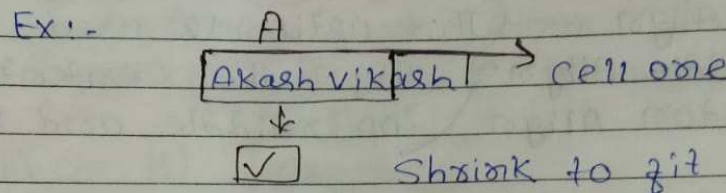 Ex :-
A
Akash Vikash → Cell one
↓
☑ Shrink to fit